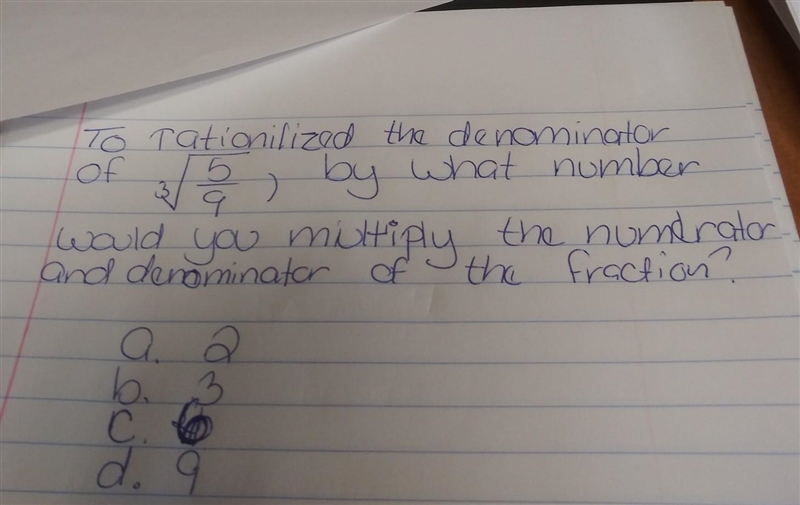 To rationilized the denominator
of ∛(5/9), by what number
would you multiply the numerator
and denominator of the fraction?
a. 2
b. 3
c. 6
d. 9